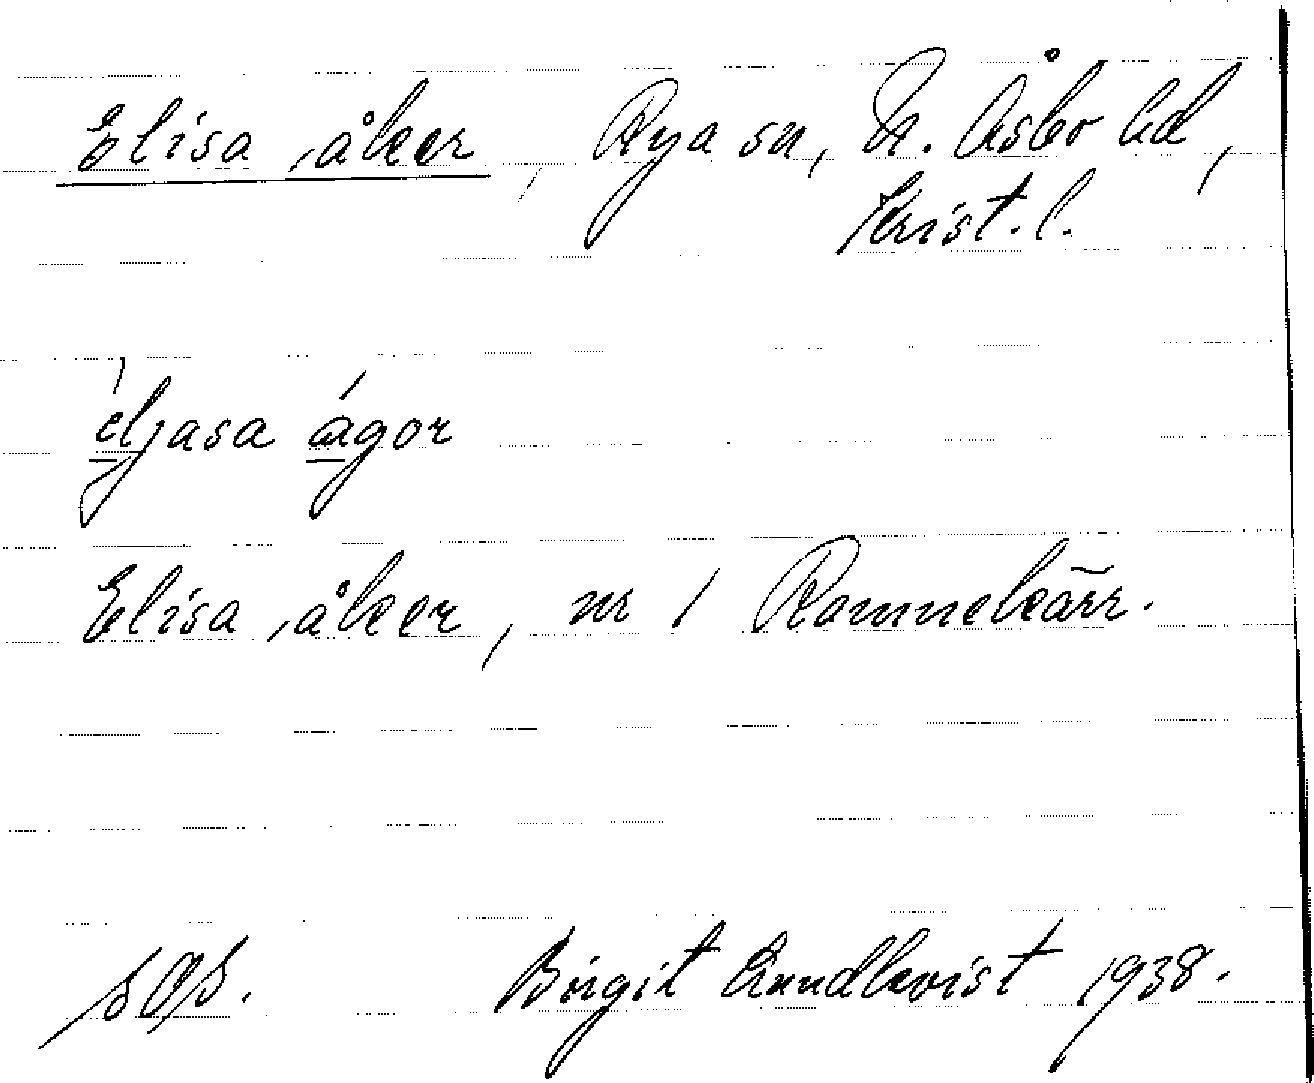 Elisa ,åker, Rya sn, N. Åsbo hd,
Krist. l.
éljasa ágor
Elisa ,åker, nr 1 Rammekärr.
SOS. Birgit Lundkvist 1938.